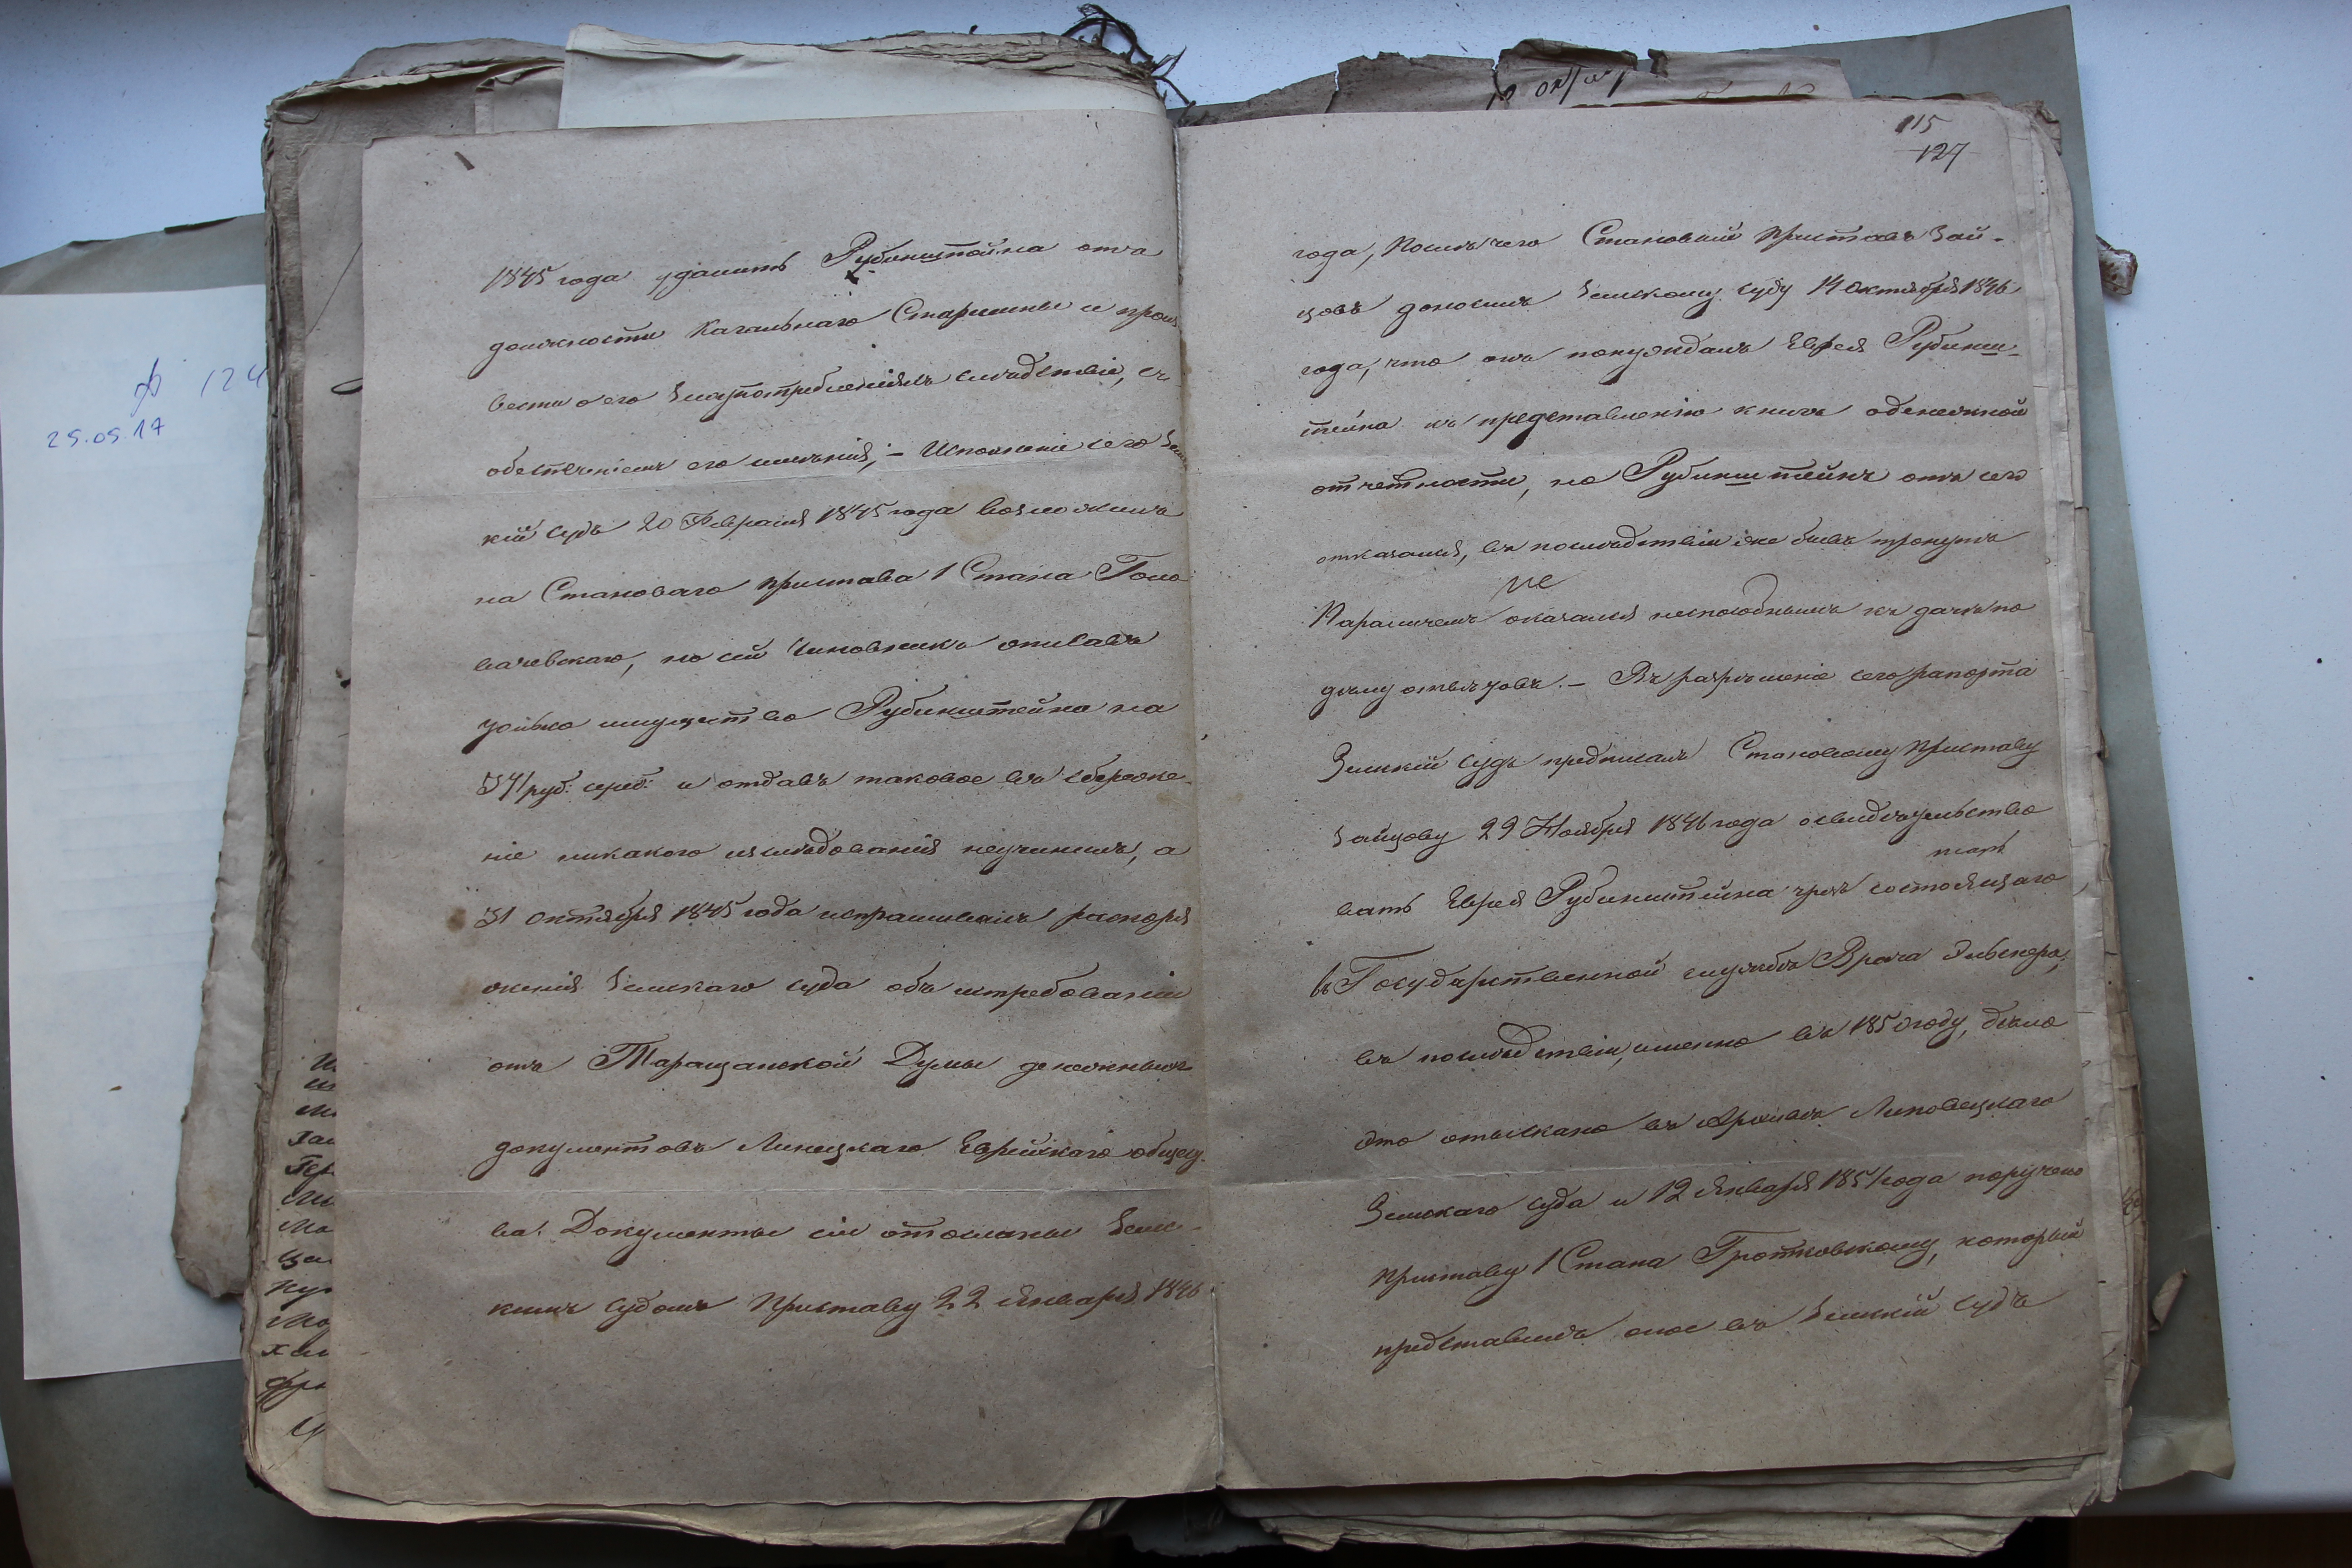 1845 года удалить Рубинштейна отъ
должности Кагальнаго Старшины и произ
вести о его злоупотребленіяхъ слѣдствіе, съ
обезпеченіемъ его имѣнія; – Исполненіе сего Земс
кій судъ 20 Февраля 1845 года возложилъ
на Становаго Пристава 1 Стана Голо
вачевскаго, но сей Чиновникъ описавъ
только имущество Рубинштейна на
571 руб: сереб: и отдавъ таковое въ сбереже-
ніе никакого изслѣдованія неучинилъ, а
31 Октября 1845 года испрашивалъ распоря
женія Земскаго суда объ истребованіи
отъ Таращанской Думы денежныхъ
документовъ Линецкаго Еврейскаго общес.
ва. Документы сіи отосланы Земс-
кимъ судомъ Приставу 22 Января 1846
115
127
года, Послѣ чего Становый Приставъ Зай-
цовъ доносилъ Земскому суду 14 Октября 1846
года, что онъ понуждалъ Еврея Рубинш-
тейна къ представленію книгъ о денежной
отчетности, но Рубинштейнъ отъ сего
отказался, въ послѣдствіи же бывъ тронутъ
Параличемъ оказался неспособнымъ къ дачѣ по
не
дѣлу отвѣтовъ. – Въ разрѣшеніе сего рапорта
Земскій судъ предписалъ Становому Приставу
Зайцову 29 Ноября 1846 года освидѣтельство
вать Еврея Рубинштейна чрезъ состоящаго
въ Государственной службѣ Врача
въ послѣдствіи, именно въ 1850 году, дѣло
это отыскано въ Архивѣ Липовецкаго
Земскаго суда и 12 Января 1851 года поручено
Приставу 1 Стана Гротковскому, который
представилъ оное въ Земскій судъ
124
25.05.17